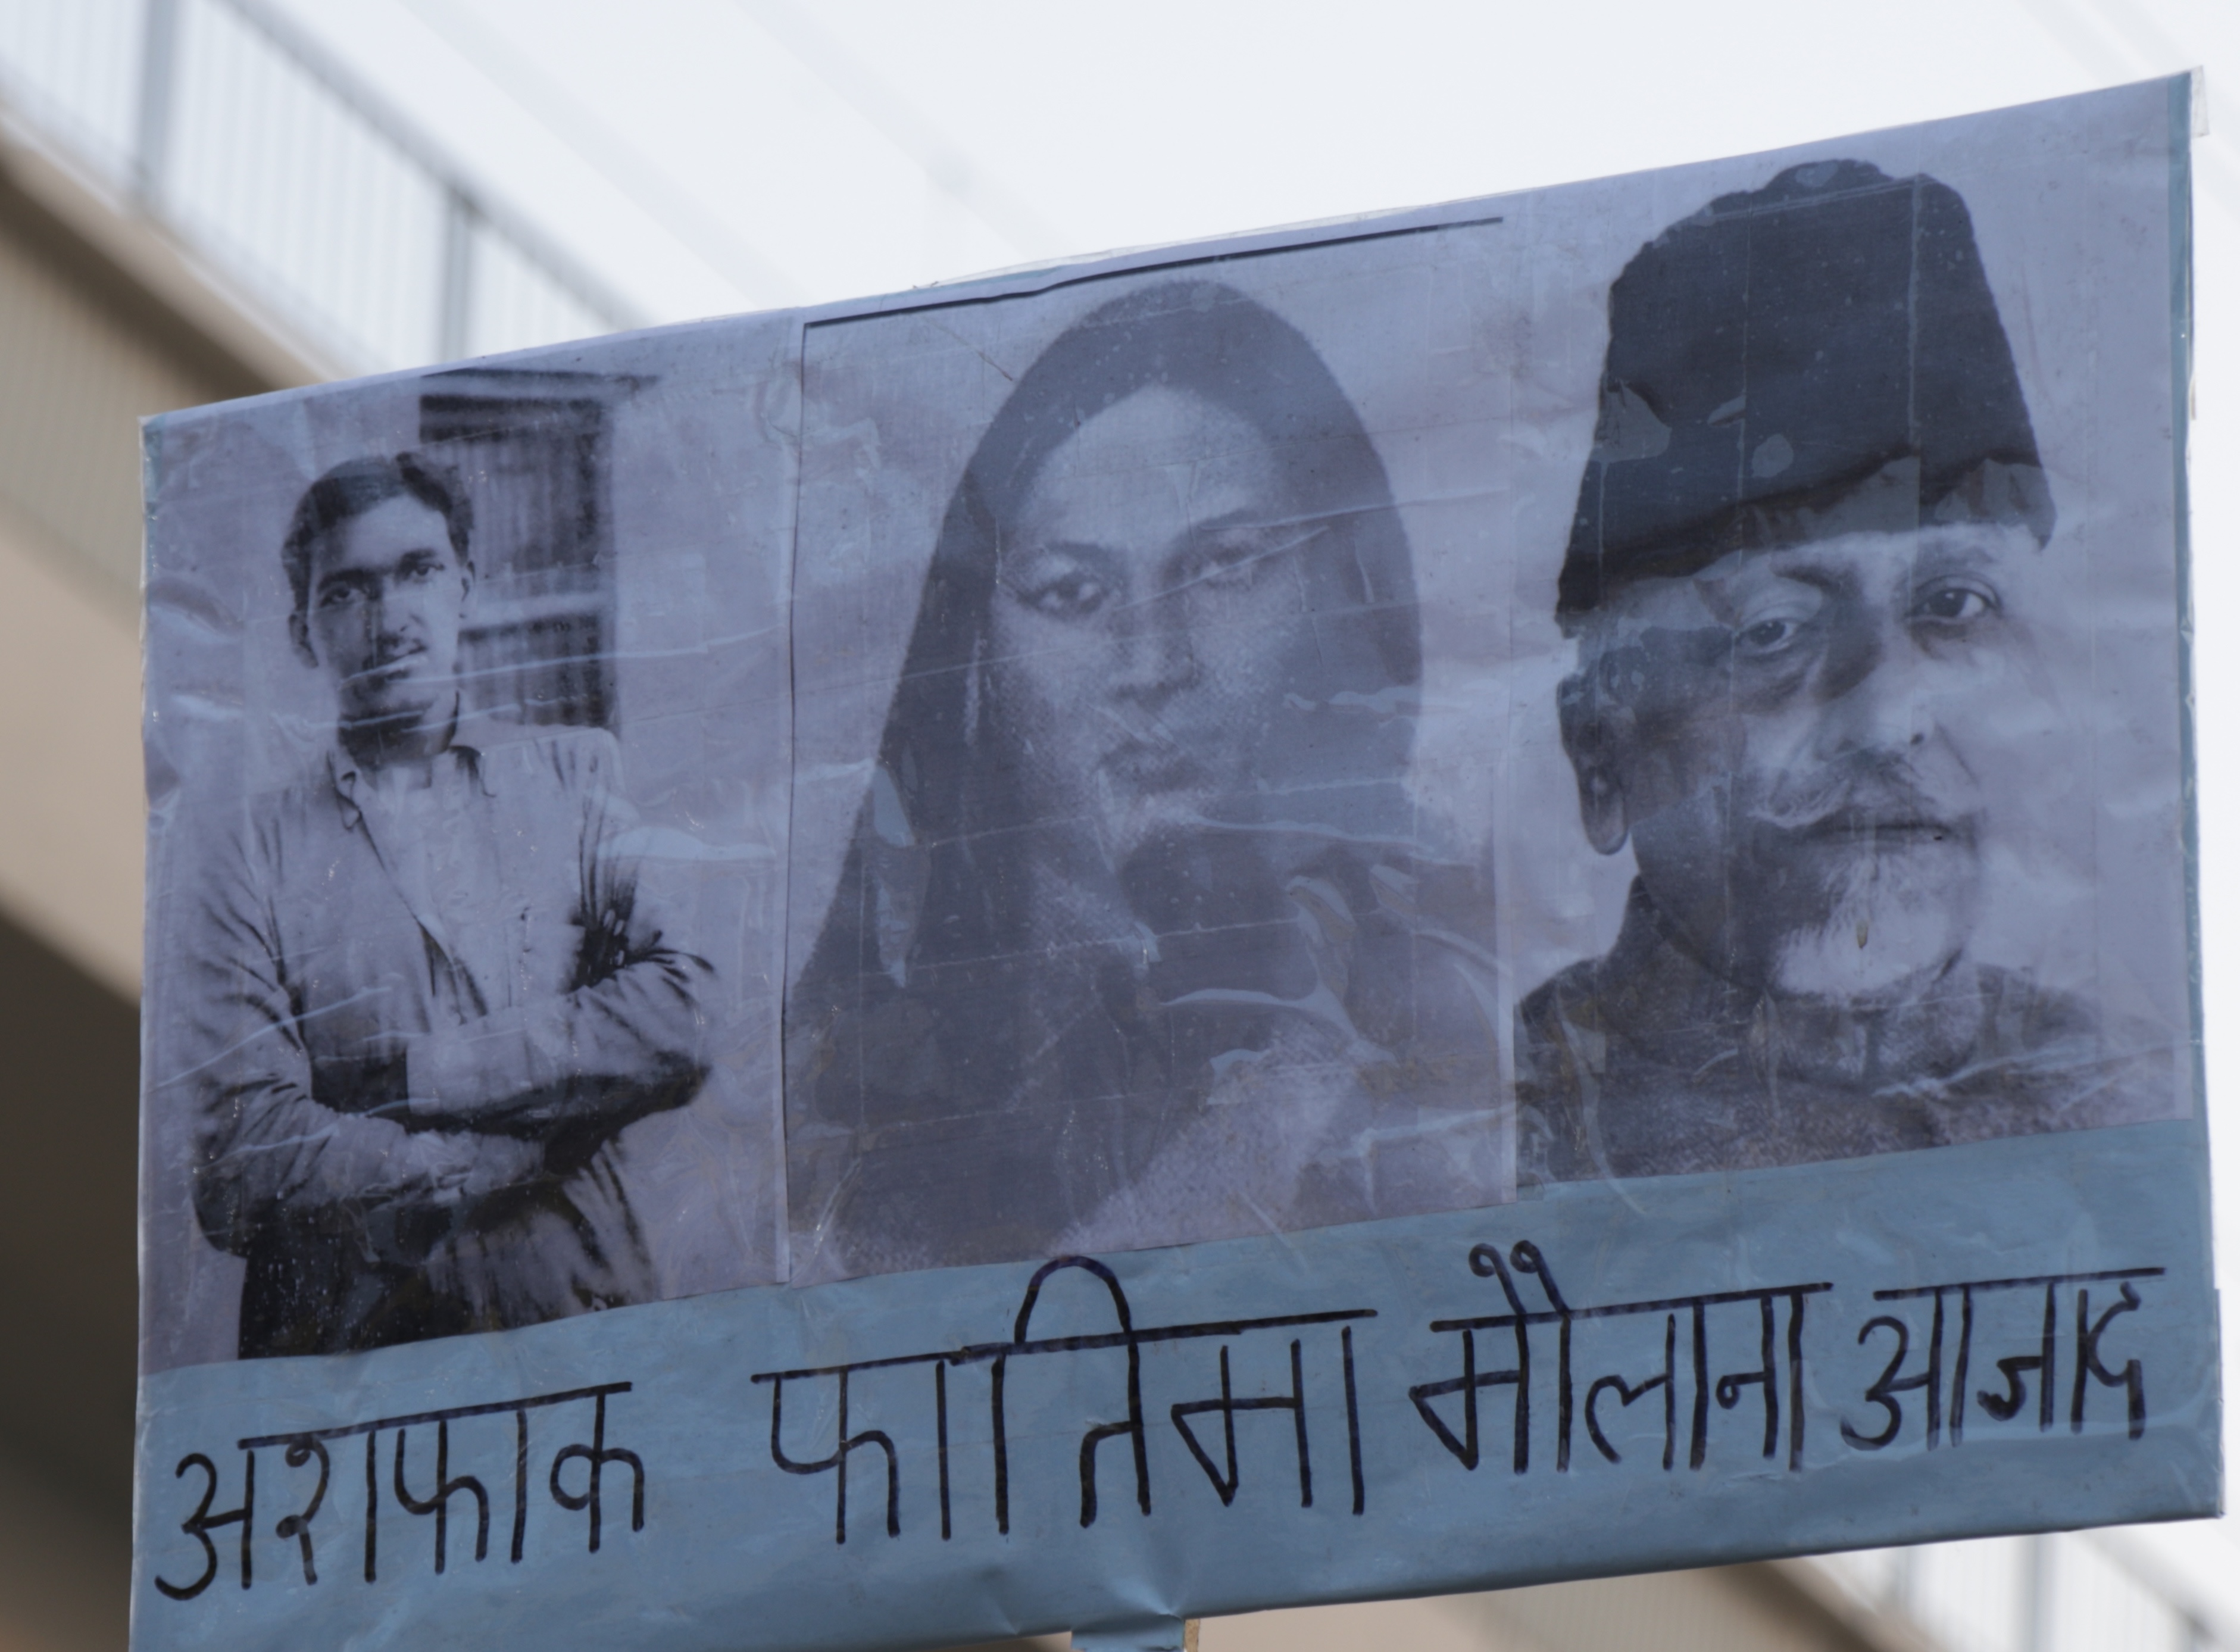 अशफाक फातिमा मौलाना आजाद